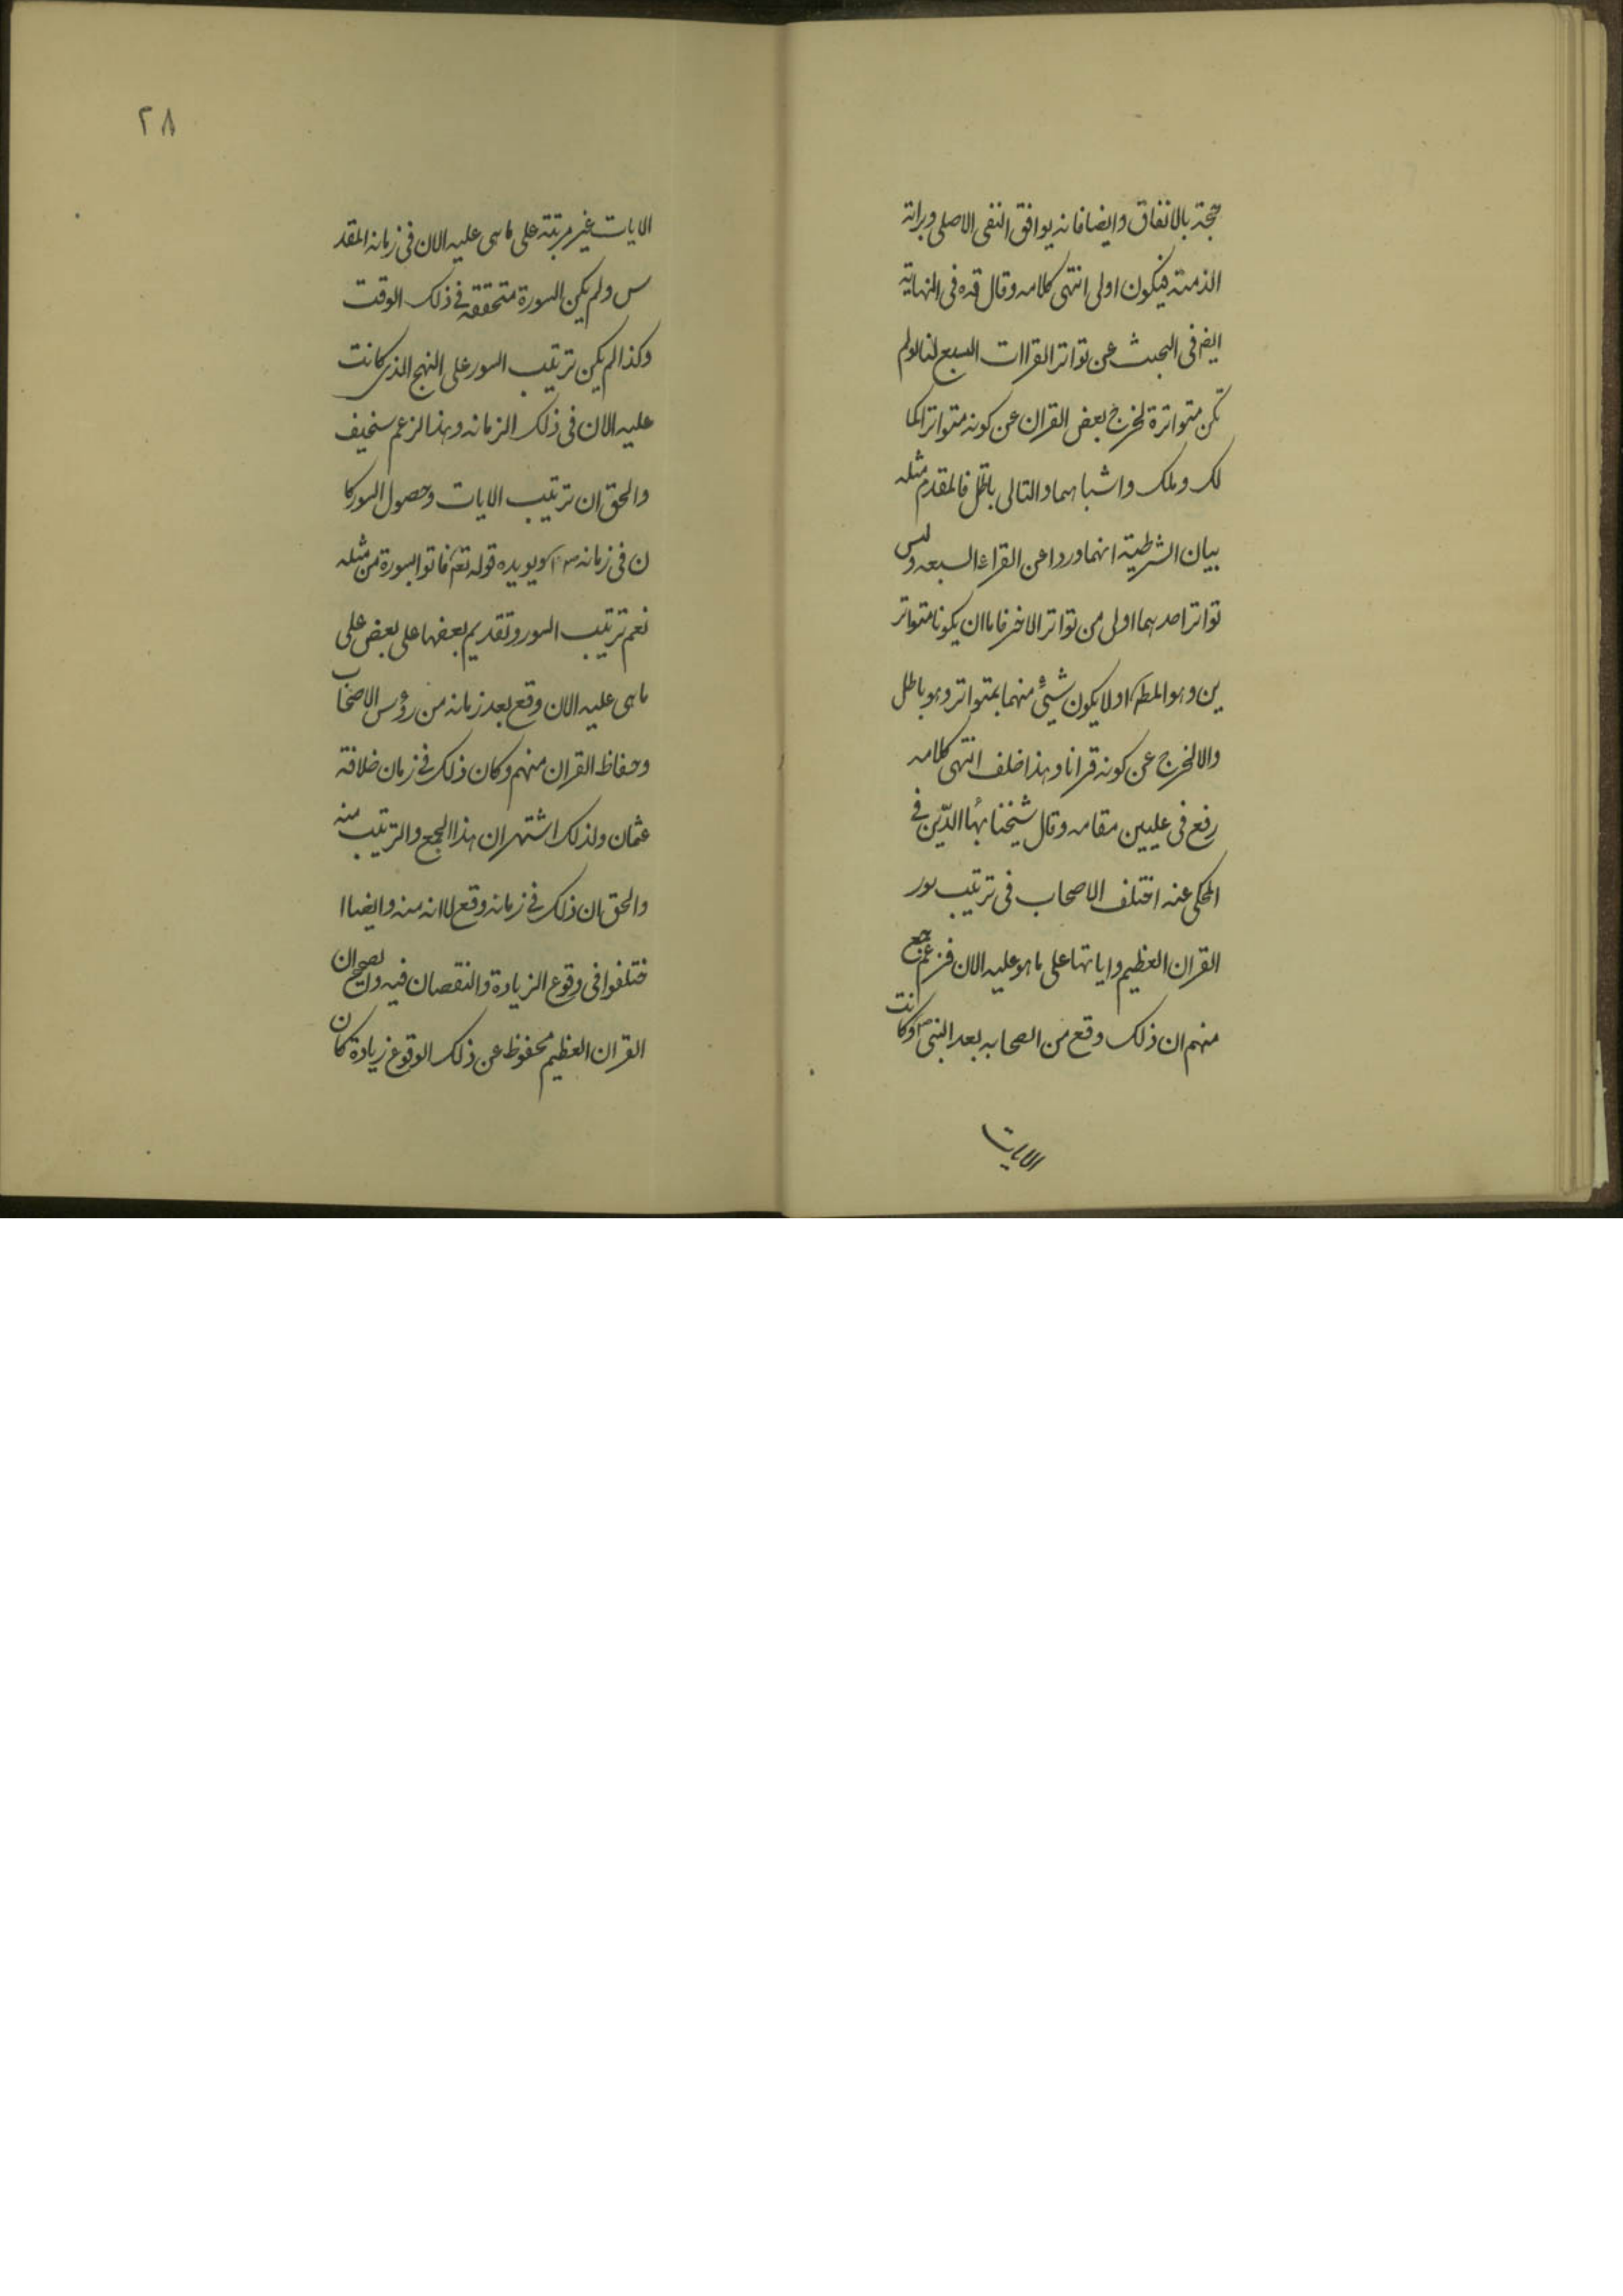 حجة بالاتفاق وايضا فانه يوافق النفى الاصلى وبراته
الذمته فيكون اولى انتهى كلامه وقال قده فى النهاية
ايضا فى البحث عن تواتر القراات السبع لنا لو لم
تكن متواترة لخرج بعض القران عن كونه متواترا كما
لك وملك واشباههما والتالى باطل فالمقدم مثله
بيان الشرطية انهما وردا عن القراء السبعه وليس
تواتر احدهما اولى من تواتر الاخر فاما ان يكونا متواتر
ين وهو المط او لا يكون شيئ منهما بمتواتر وهو باطل
والا لخرج عن كونه قرانا وهذا خلف انتهى كلامه
رفع فى عليين مقامه وقال شيخنا بهاء الدّين فى
المحكى عنه اختلف الاصحاب فى ترتيب سور
القران العظيم واياتها على ما هو عليه الان فزعم جمع
منهم ان ذلك وقع من الصحابه بعد النبى ص وكانت
الايات
٢٨
الايات غير مرتبته على ما هى عليه الان فى زمانه المقد
س ولم يكن السورة متحققه فى ذلك الوقت
وكذا لم يكن ترتيب السور على النهج الذى كانت
عليه الان فى ذلك الزمانه وهذا الزعم سخيف
والحق ان ترتيب الايات وحصول السور كا
ن فى زمانه ص ويويده قوله تعم فاتوا بسورة من مثله
نعم ترتيب السور وتقديم بعضها على بعض على
ما هى عليه الان وقع بعد زمانه من رؤس الاصحاب
وحفاظ القران منهم وكان ذلك فى زمان خلافة
عثمان ولذلك اشتهر ان هذا الجمع والترتيب منه
والحق ان ذلك فى زمانه وقع لا انه منه وايضا ا
ختلفوا فى وقوع الزيادة والنقصان فيه والصحيح ان
القران العظيم محفوظ عن ذلك الوقوع زيادة كان